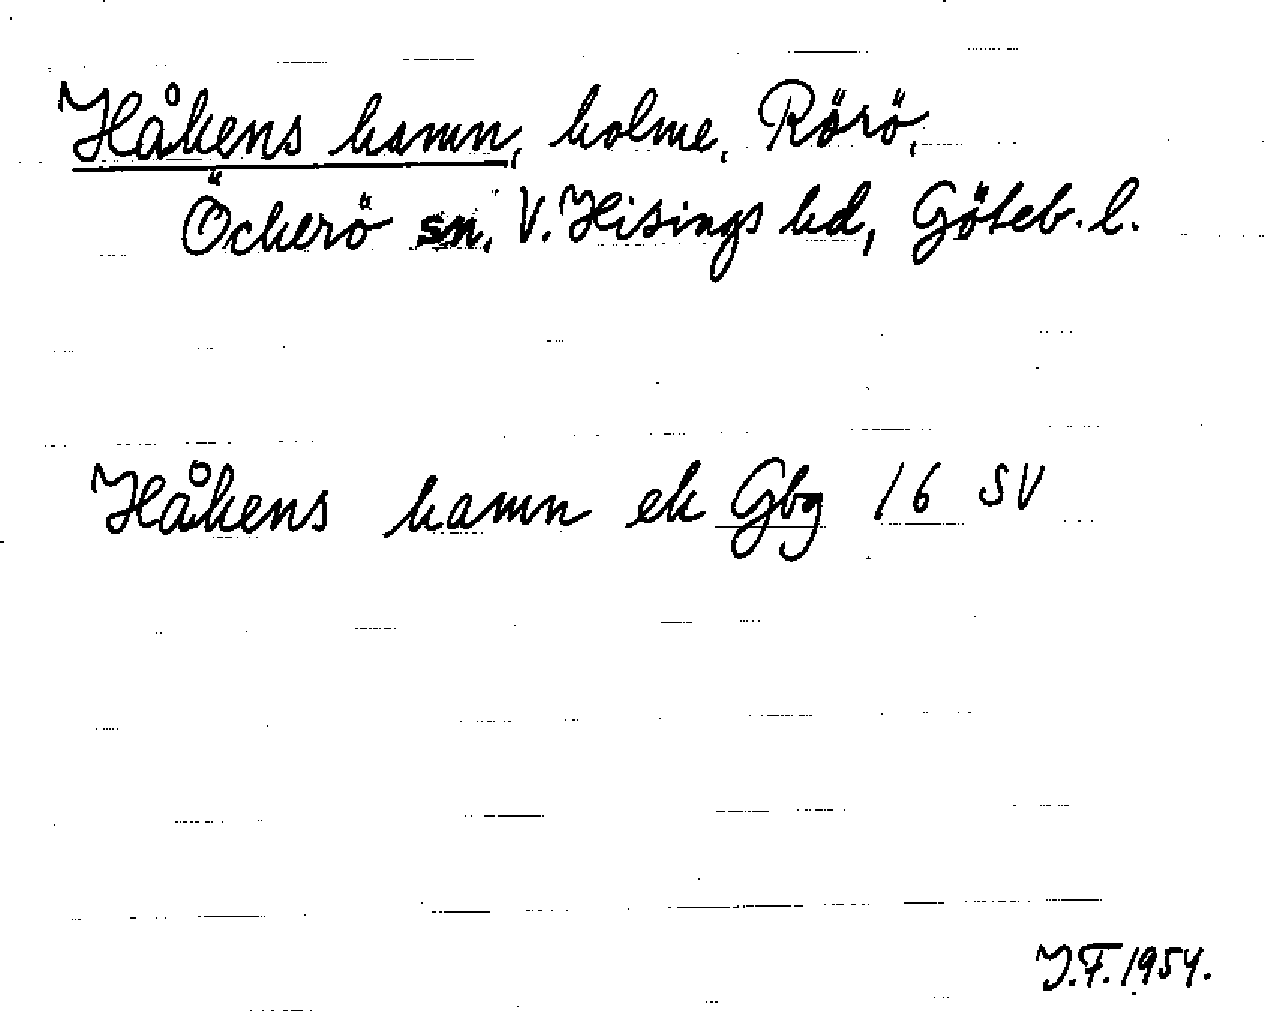 Håkens hamn, holme, Rörö,
Öckerö sn, V. Hisings hd, Göteb. l.
Håkens hamn ek Gbg 16 SV
J.F. 1954.